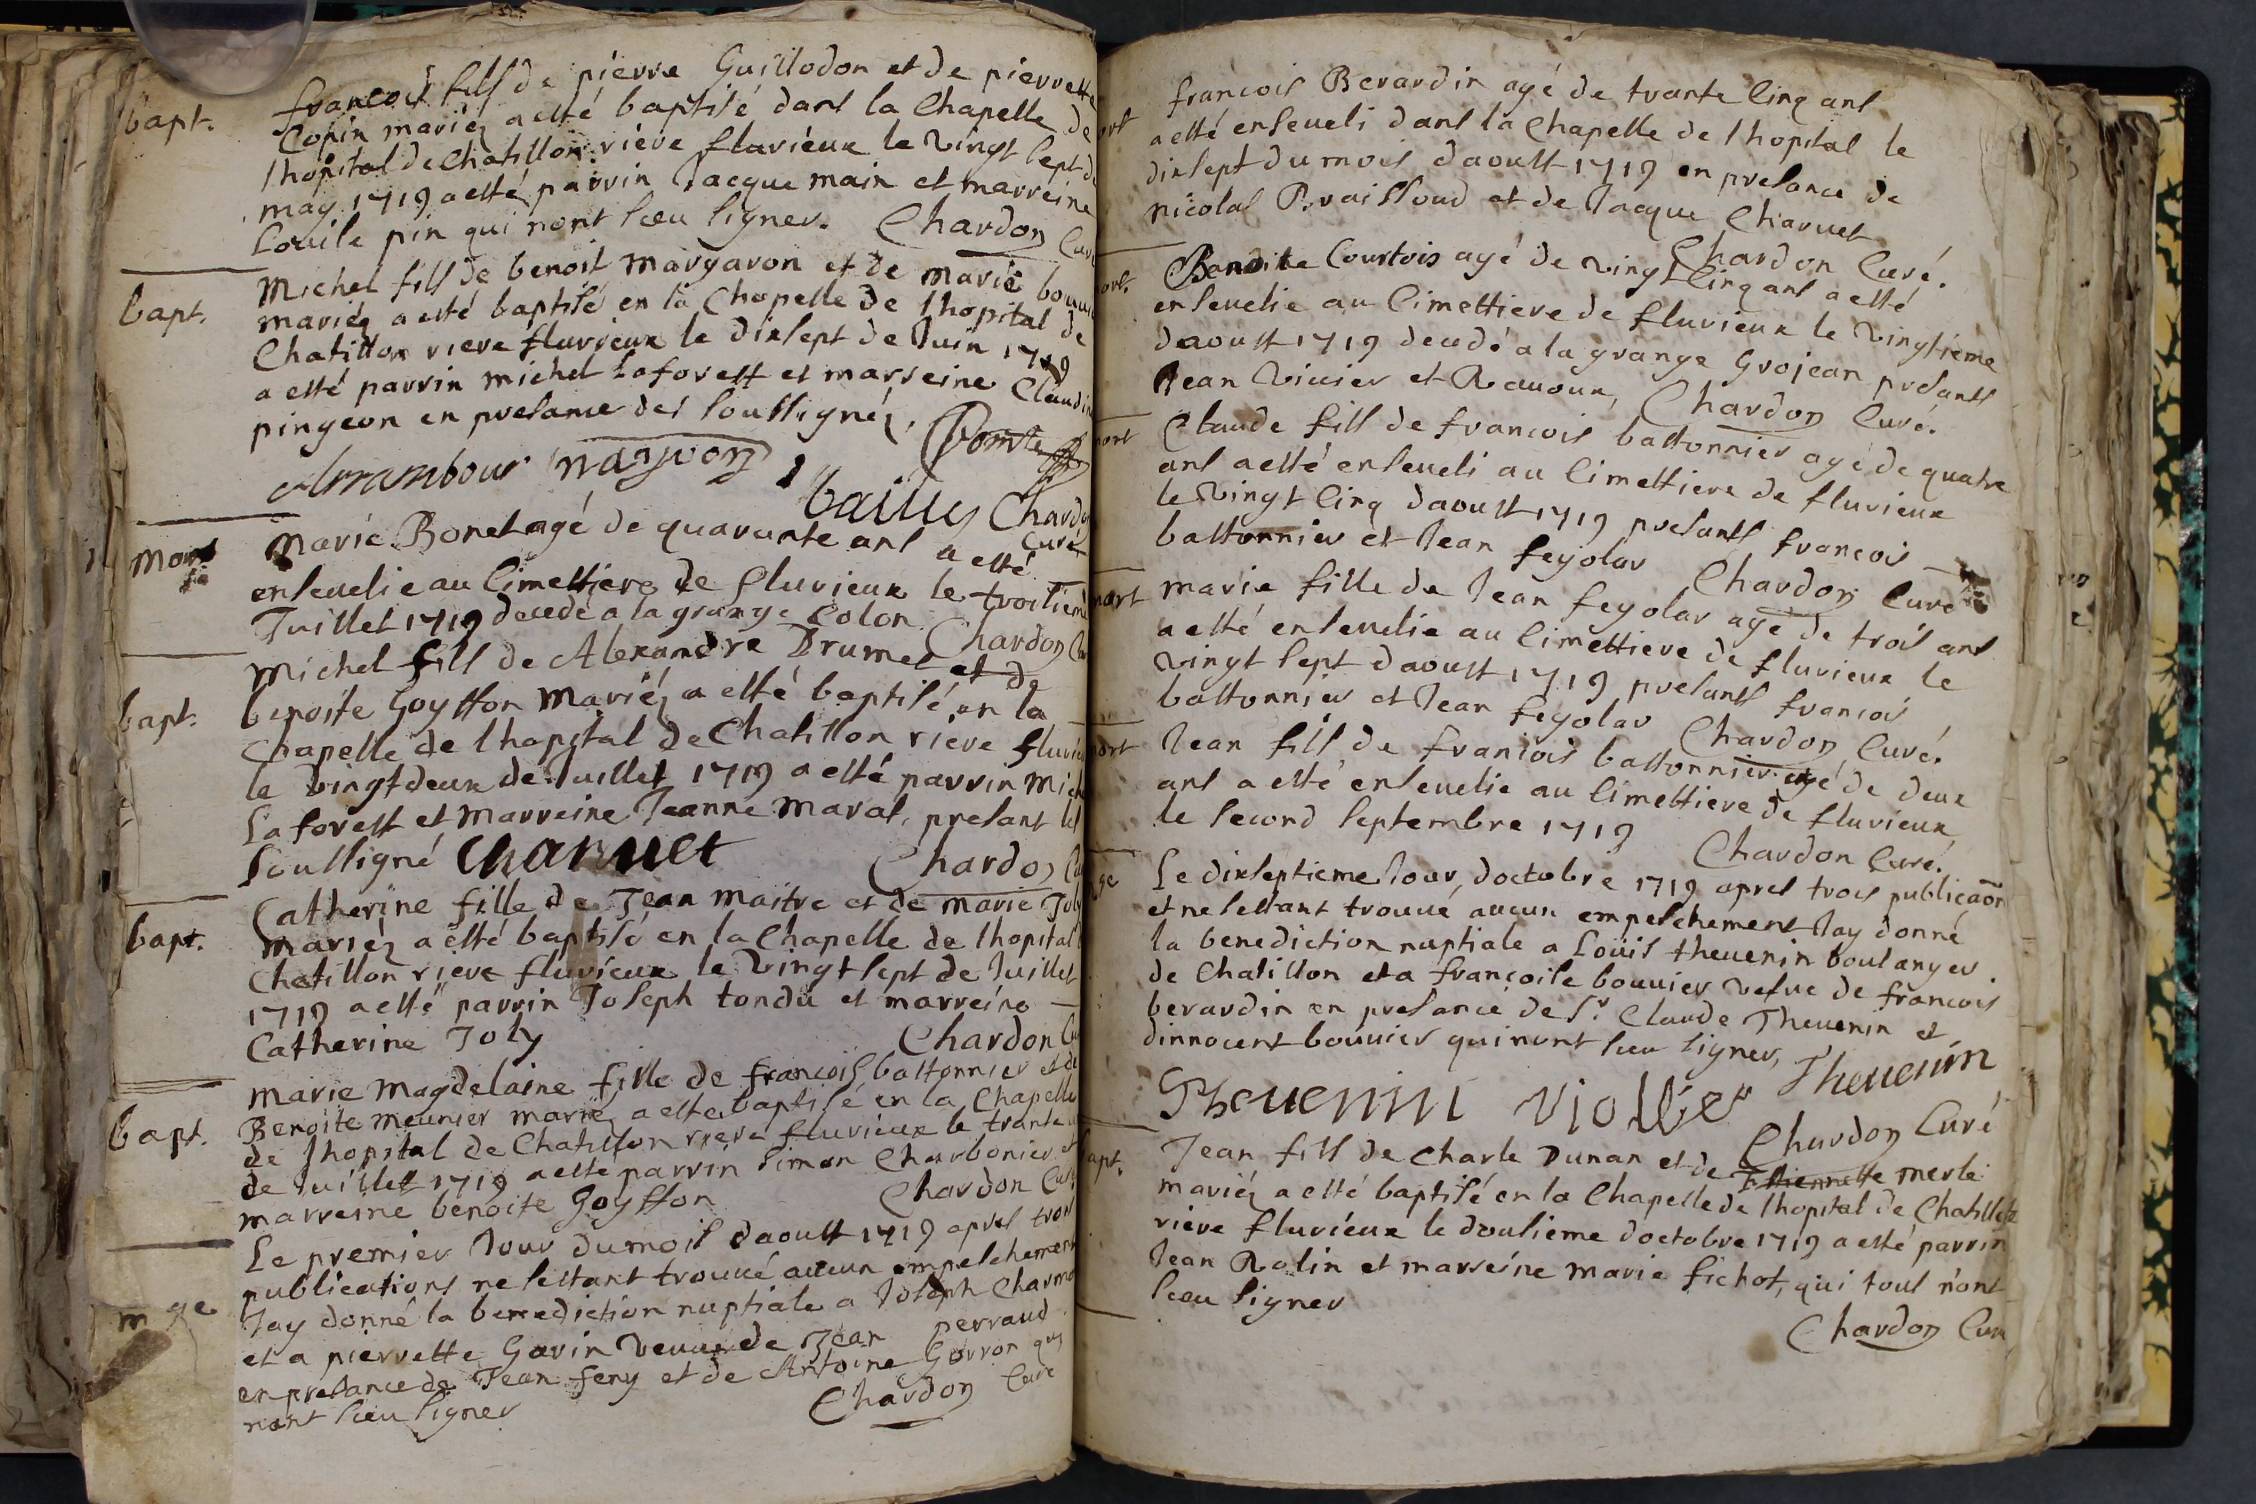 bapt. francois fils de pierre Guillodon et de pierrette
Copin mariéz a esté baptisé dans la Chapelle de
lhopital de Chatillon riere fluvieux le vingt sept de
may 1719 a esté parrin Jacque main et marreine
Louise pin qui nont sceu signer. Chardon Curé
bapt. Michel fils de benoist margaron et de marie
mariéz a esté baptisé en la Chapelle de lhopital de
Chatillon riere fluvieux le dixsept de Juin 1719
a esté parrin michel Laforest et marreine Claudine
pingeon en presance des soussignéz,
Arrambour
bailly Chardon
Curé
mort Marie Bonet agé de quarante ans a esté
ensevelie au Cimettiere de fluvieux le troisieme
Juillet 1719 decedé a la grange Colon Chardon
bapt. Michel fils de Alexandre Drumet et de
benoite Goyffon mariéz a esté baptisé en la
Chapelle de lhopital de Chatillon riere fluvieux
le vingt deux de Juillet 1719 a esté parrin Michel
Laforest et marreine Jeanne maral, presant les
soussigné Charvet Chardon
bapt. Catherine fille de Jean maitre et de marie Joly
mariéz a esté baptisé en la Chapelle de lhopital
Chatillon riere fluvieux le vingt sept de Juillet
1719 a esté parrin Joseph tondu et marreine
Catherine Joly Chardon
bapt. marie magdelaine fille de francois bastonnier et de
Benoite meunier mariéz a esté baptisé en la Chapelle
de lhopital de Chatillon riere fluvieux le trante
de Juillet 1719 a esté parrin simon Charbonier et
marreine benoite Goyffon Chardon Curé
mge Le premier Jour du mois daoust 1719 apres trois
publications ne sestant trouvé aucun empeschement
Jay donné la benediction nuptiale a Joseph
et a pierrette Gavin veuve de Jean perraud
en presance de Jean feny et de Antoine Gorron qui
nont sceu signer Chardon Curé
ort francois Berardin agé de trante cinq ans
a esté enseveli dans la Chapelle de lhopital le
dixsept du mois daoust 1719 en presance de
nicolas Braissoud et de Jacque Charvet
Chardon Curé.
ort. Benoite Courtois agé de vingt cinq ans a esté
ensevelie au Cimettiere de fluvieux le vingtieme
daoust 1719 decedé a la grange Grojean presants
Jean vivier et Ravoux, Chardon Curé.
mort Claude fils de francois bastonnier agé de quatre
ans a esté enseveli au Cimettiere de fluvieux
le vingt cinq daoust 1719 presants francois
bastonnier et Jean feyolar Chardon Curé
mort marie fille de Jean feyolar agé de trois ans
a esté ensevelie au Cimettiere de fluvieux le
vingt sept daoust 1719 presants francois
bastonnier et Jean feyolar Chardon Curé.
ort Jean fils de francois bastonnier agé de deux
ans a esté ensevelie au Cimettiere de fluvieux
le second septembre 1719 Chardon Curé.
ge Le dixseptieme Jour, doctobre 1719 apres trois publicaon
et ne sestant trouvé aucun empeschement Jay donné
la benediction nuptiale a Loüis thevenin boulanger
de Chatillon et a françoise bouvier vefve de francois
berardin en presance de Sr. Claude Thevenin et
dinnocent bouvier qui nont sceu signer,
Thevenin viollier Thevenin
Chardon Curé
bapt. Jean fils de Charle Dunan et de Etiennette merle
mariéz a esté baptisé en la Chapelle de lhopital de Chatillon
riere fluvieux le dousieme doctobre 1719 a esté parrin
Jean Ralin et marreine marie fichot, qui tous nont
sceu signer
Chardon Curé